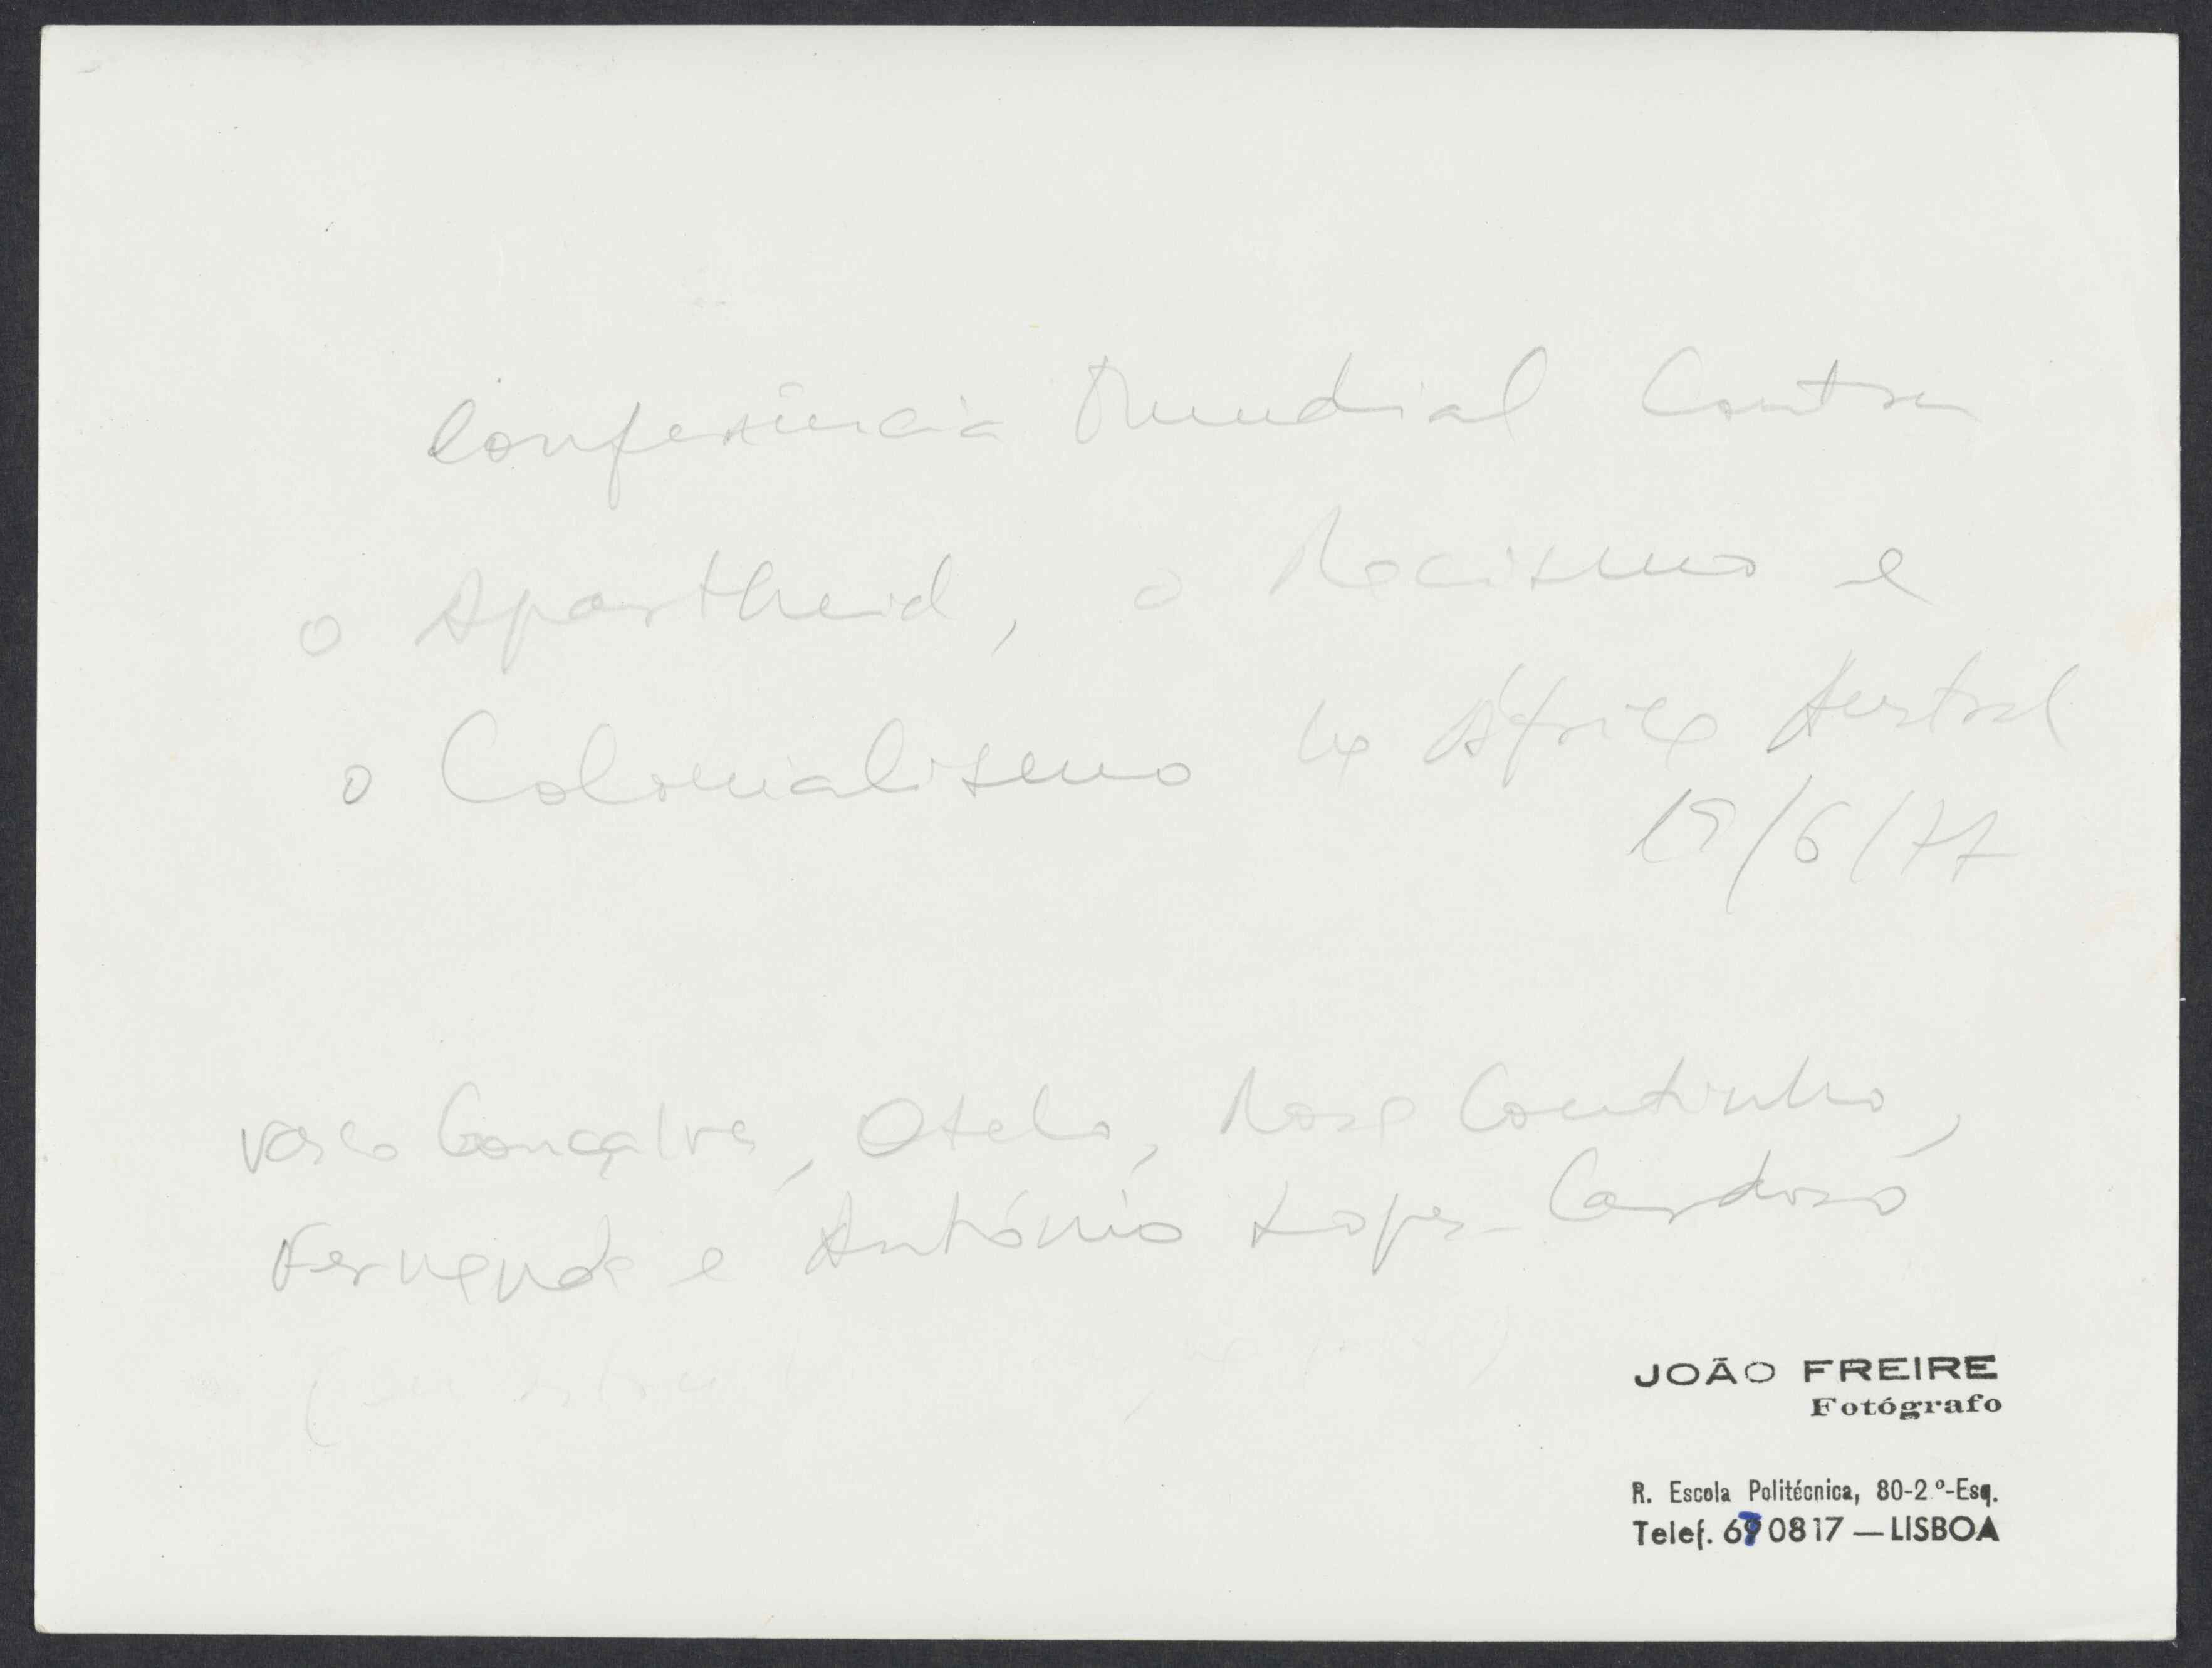 Conferência Mundial Contra
o Apartheid, o Racismo e
o Colonialismo na África Austral
19/6/77
Vasco Gonçalves, Otelo, Rosa Coutinho,
Fernanda e António Lopes-Cardoso
JOÃO FREIRE
Fotógrafo
R. Escola Politécnica, 80-2.º-Esq.
Telef. 670817 — LISBOA